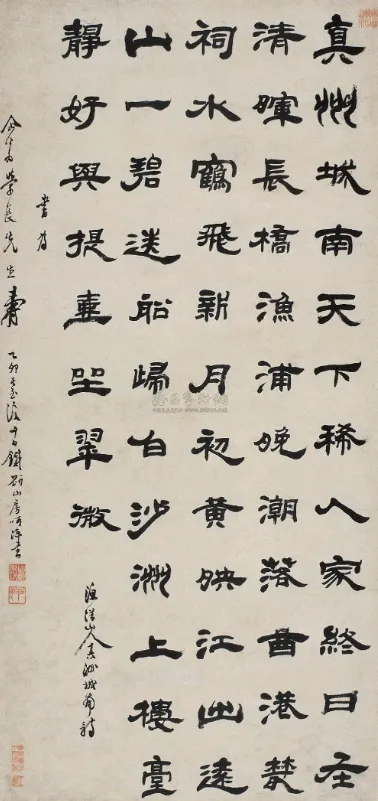 真州城南天下稀人家終日在
清暉長橋漁浦晚潮落曲港叢
祠水鶴飛新月初黃映江出遠
山一碧送船歸白沙洲上樓臺
靜好與提壺坐翠微
漁洋山人真州城南詩
書為
學長先生壽
乙卯 後十日鐵 山房 書